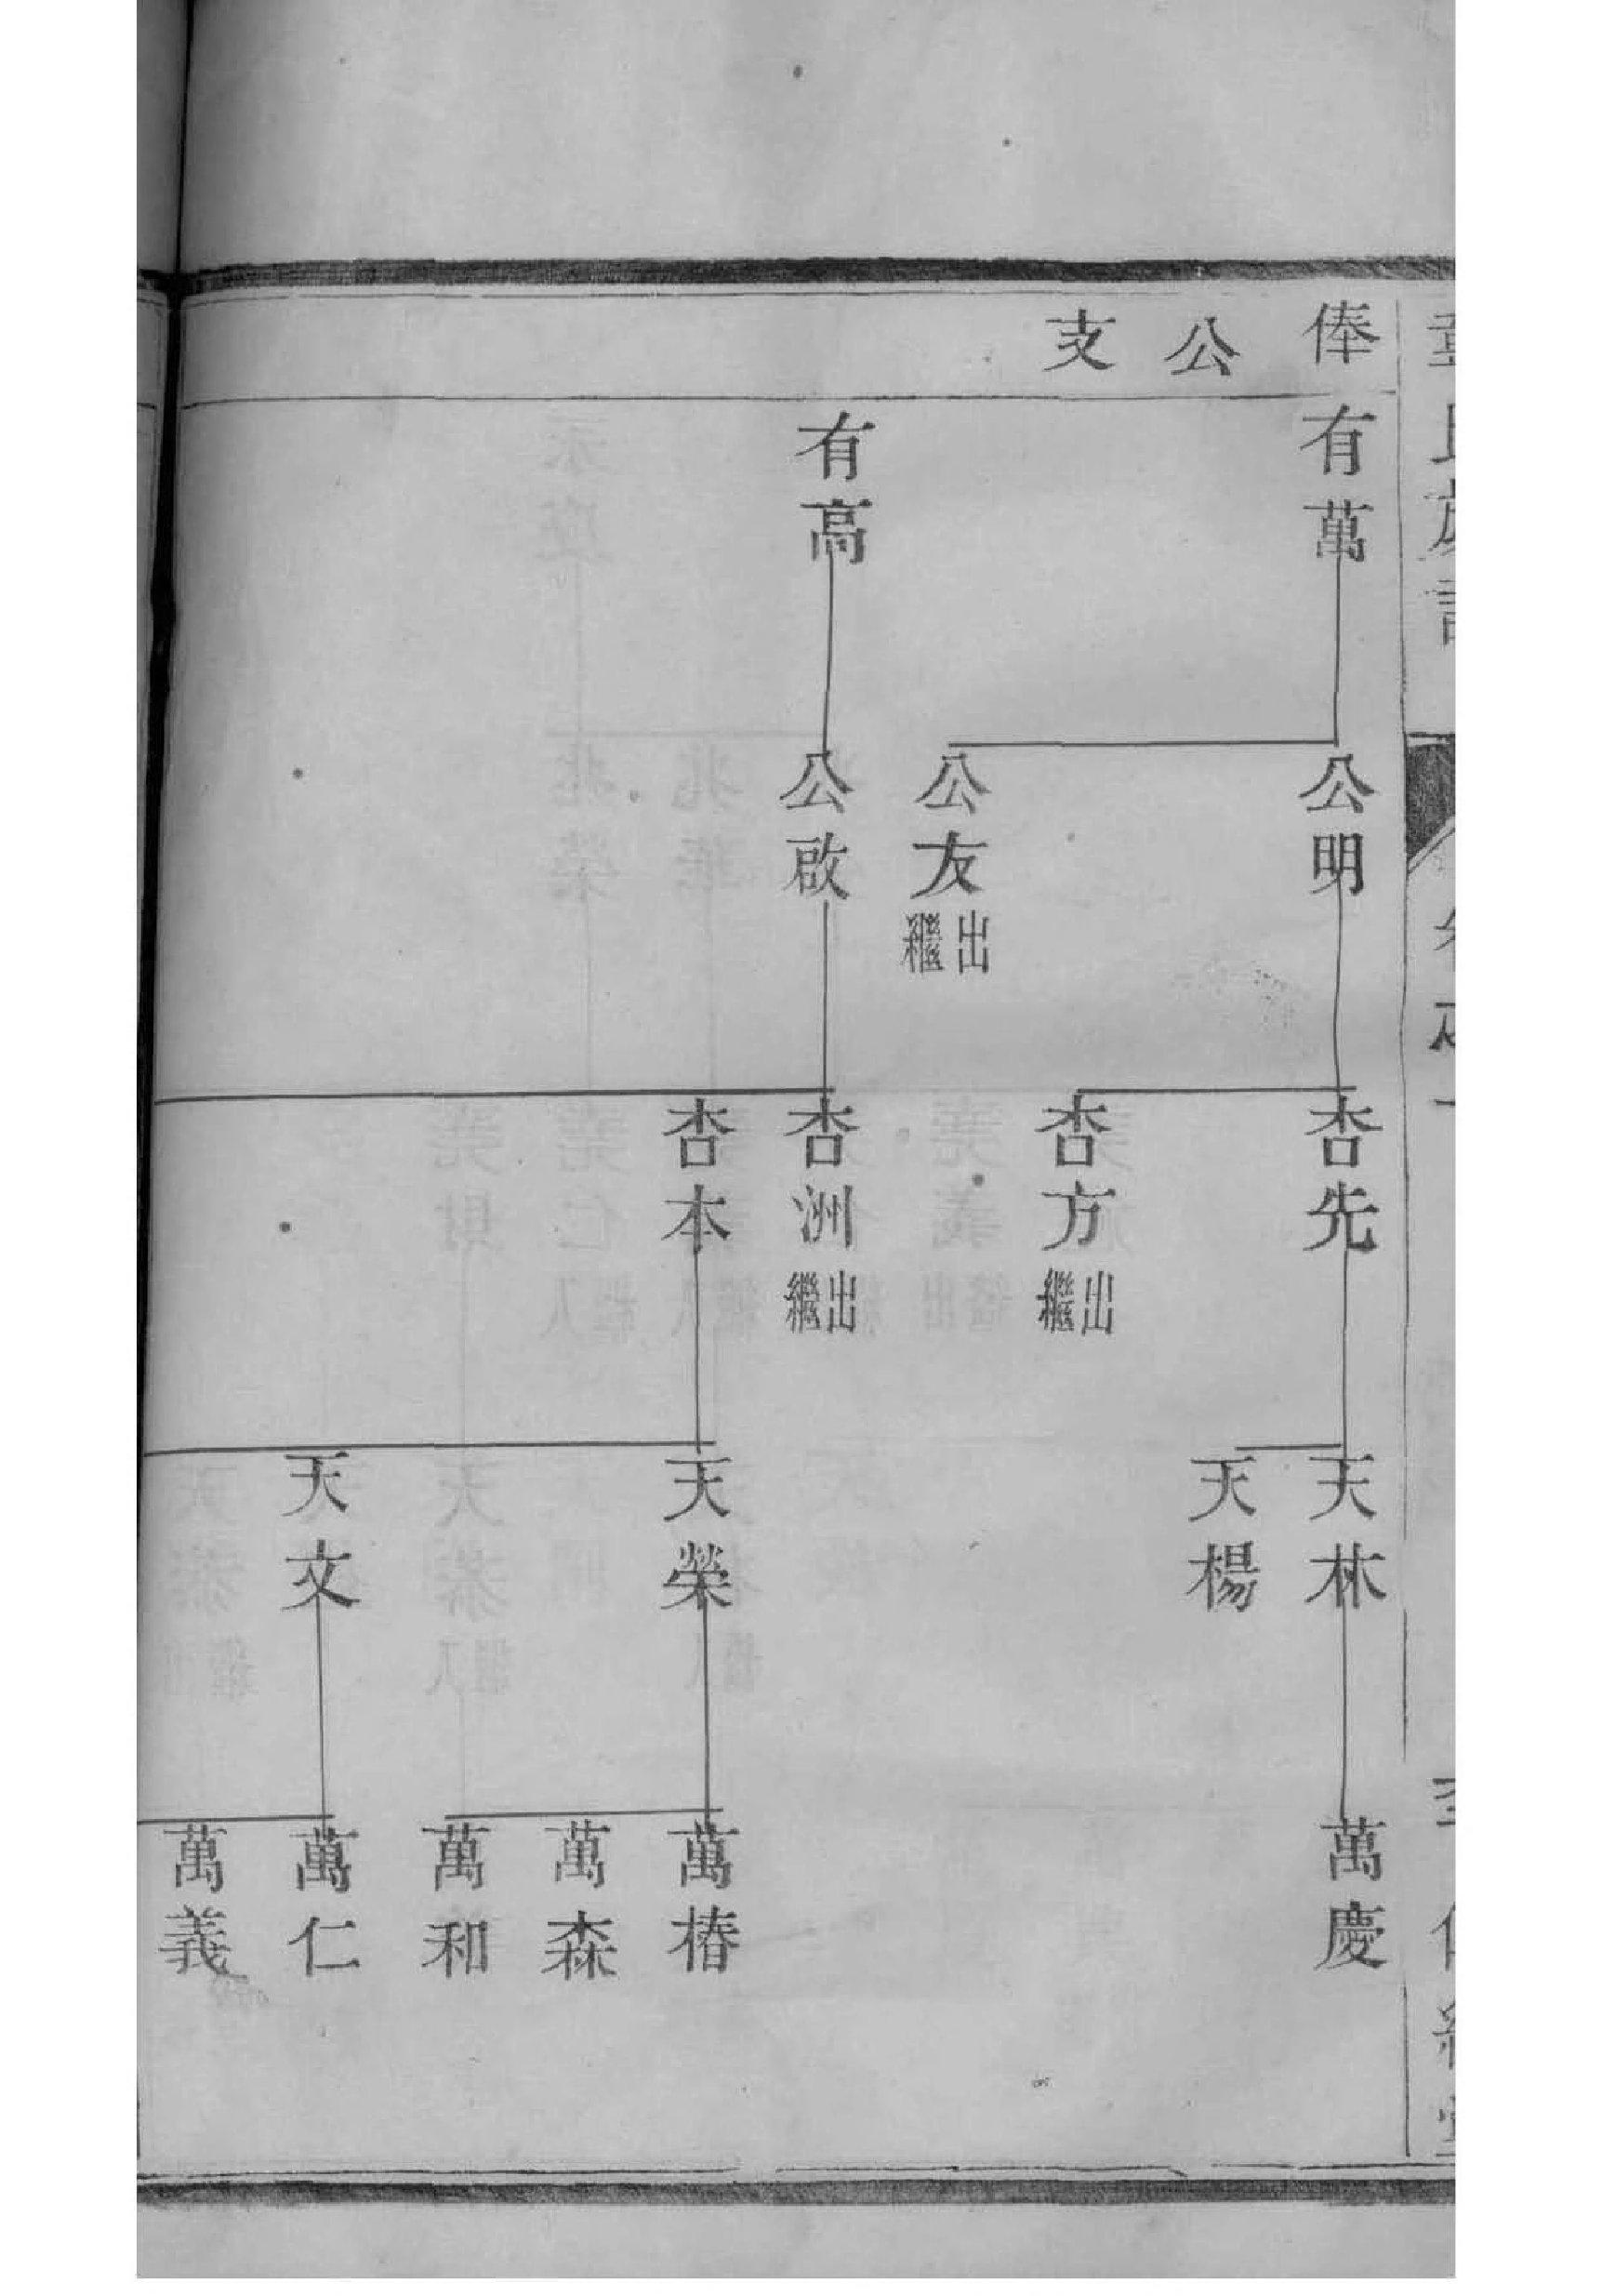 俸公支
有萬
有高
公明
公友
出繼
公啟
杏先
杏方
出繼
杏洲
出繼
杏本
天林
天楊
天榮
天文
萬慶
萬椿
萬森
萬和
萬仁
萬義